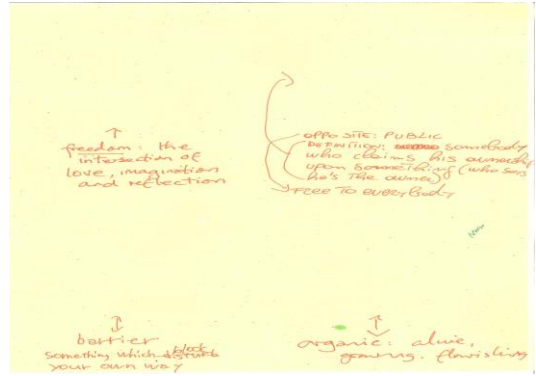 freedom: the
intersection of
love, imagination
and reflection
OPPOSITE: PUBLIC
DEFINITION: somebody
who claims his ownership
upon something (who says
he's the owner)
FREE TO EVERYBODY
barrier
something which block
your own way
organic: alive,
growing, flourishing